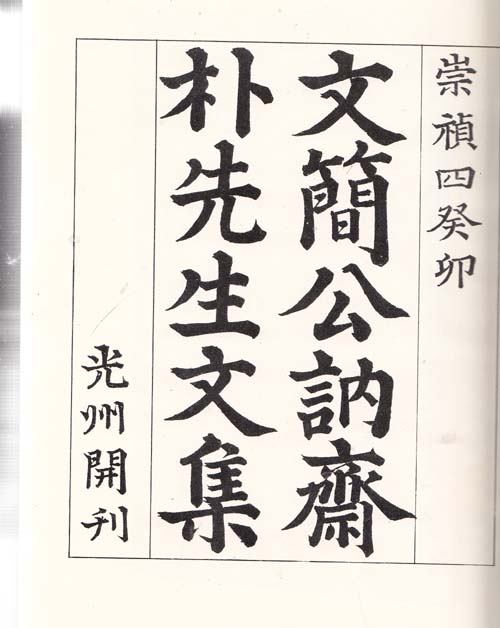 崇禎四癸卯
文簡公訥齋
朴先生文集
光州開刊